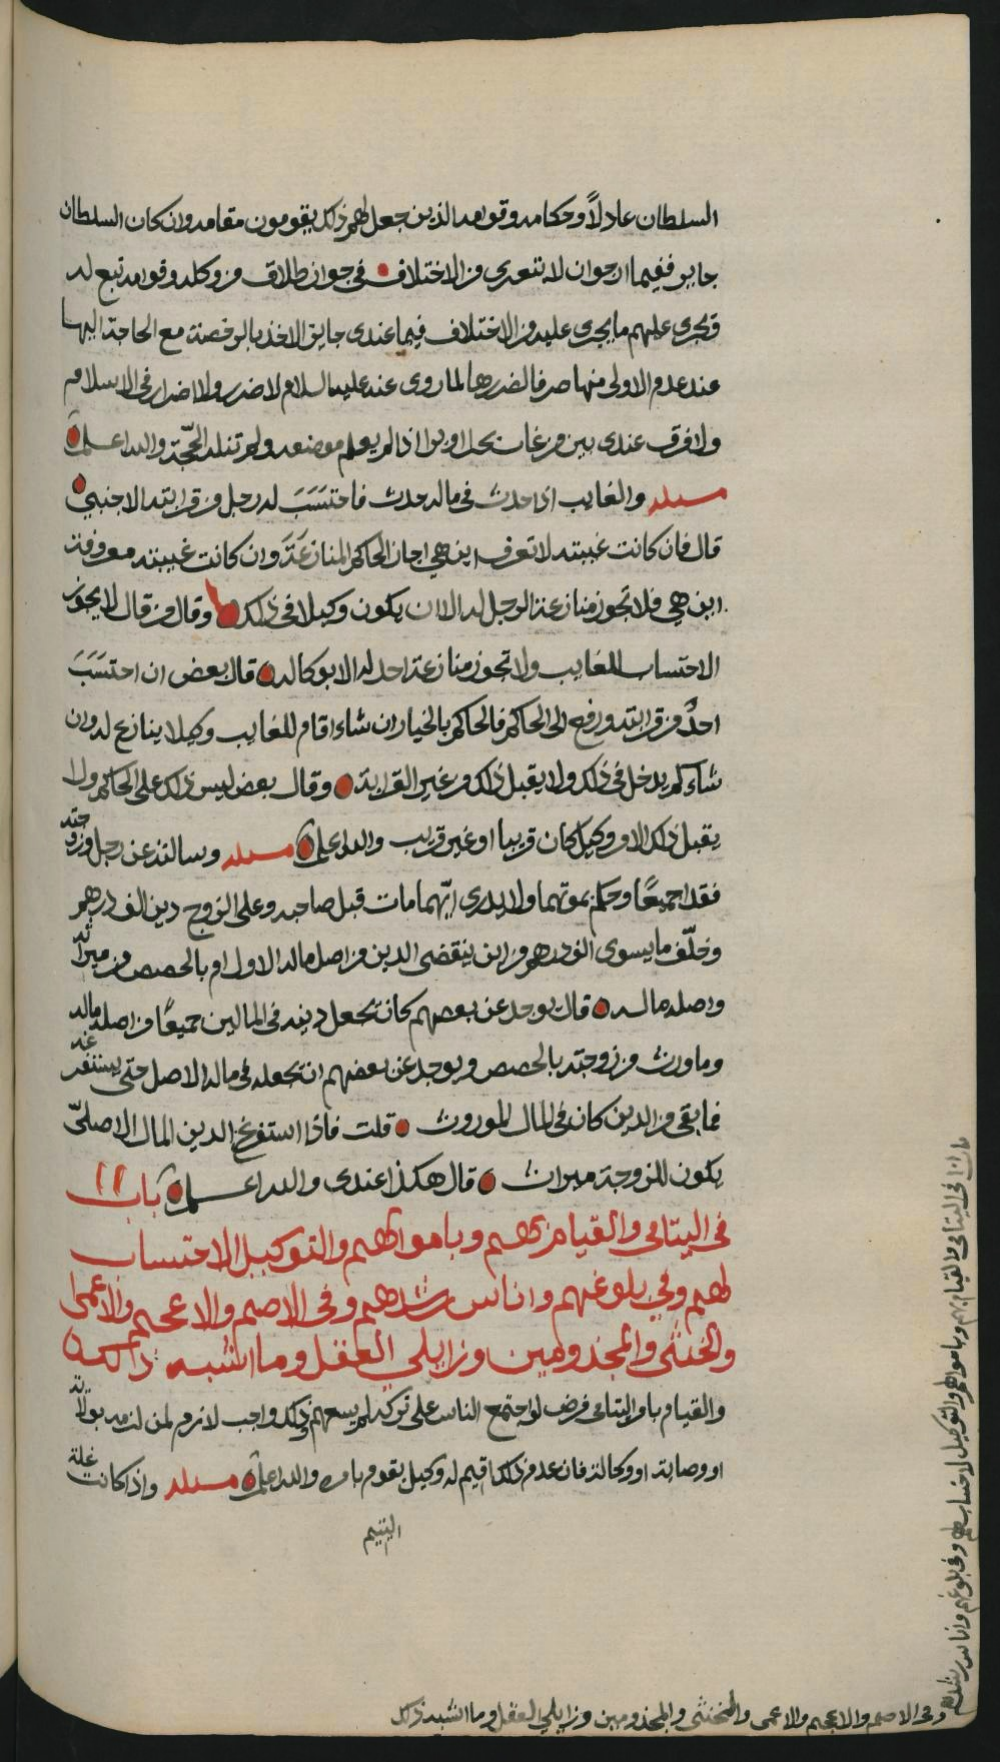 السلطان عادلاً وحكامه وقوامه الذين جعل لهم ذلك يقومون مقامه وان كان السلطان
جاير ففيما ارجوان لا تتعرى من الاختلاف في جواز طلاق من وكله وقوامه تبع له
ويجرى عليهم ما يجرى عليه من الاختلاف فيما عندى جايز الاخذ بالرخصة مع الحاجة اليها
عند عدم الاولى منها صرفا لضررها لما روى عنه عليه السلام لا ضرر ولا اضرار في الاسلام
ولا فرق عندى بين من غاب بحرا او برا اذا لم يعلم موضعه ولم تنله الحجّة والله اعلم
مسئله والغايب اذا حدث في ماله حدث فاحتسَبَ له رجل من قرابته الاجنبي
قال فان كانت غيبته لا تعرف اين هي اجاز الحاكم المنازعَة وان كانت غيبته معروفة
اين هي فلا تجوز منازعة الرجل له الا ان يكون وكيلا في ذلك وقال من قال لا يجوز
الاحتساب للغايب ولا تجوز منازعة احد له الا بوكالة قال بعض ان احتسَبَ
احدٌ من قرابته ورفع الى الحاكم فالحاكم بالخيار ان شاء اقام للغايب وكيلا ينازع له وان
شاء لم يدخل في ذلك ولا يقبل ذلك من غير القرابة وقال بعض ليس ذلك على الحاكم ولا
يقبل ذلك الا من وكيل كان قريبا او غير قريب والله اعلم مسئله وسالته عن رجل وزوجته
فقدا جميعًا وحكم بموتهما ولا يدرى ايّهما مات قبل صاحبه وعلى الزوج دين الف درهم
وخلّف ما يسوى الف درهم من اين ينقضى الدين من اصل ماله الاول ام بالحصص من ميراثه
واصله ماله قال يوجد عن بعضهم كانه يجعل دينه في المالين جميعًا من اصله ماله
وما ورث من زوجته بالحصص ويوجد عن بعضهم انه يجعله في ماله الاصل حتى يستفرغه
فما بقى من الدين كان في المال الموروث قلت فاذا استفرغ الدين المال الاصليّ
يكون للزوجة ميراث قال هكذا عندى والله اعلم باب ١١
في اليتامى والقيام بهم وباموالهم والتوكيل الاحتساب
لهم وفي بلوغهم واناس رشدهم وفي الاصم والاعجم والاعمى
والخنثى والمجذومين وزايلي العقل وما اشبه ذالك
والقيام بامر اليتامى فرض لو اجتمع الناس على تركه لم يسعهم وذلك واجب لازم لمن لزمه بولاته
او وصاية او وكالة فان عدم ذلك اقيم له وكيل يقوم بامره والله اعلم مسئله واذا كانت غلة
اليتيم
باب ١١ في اليتامى والقيام بهم وباموالهم والتوكيل لاحتساب لهم وفي بلوغهم واناس رشدهم
وفي الاصم والاعجم والاعمى والخنثى والمجذومين وزايلي العقل وما اشبه ذلك